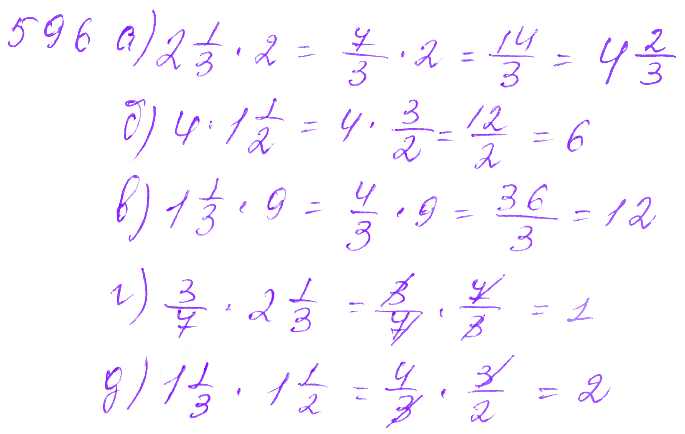 596 а) 2 1/3 · 2 = 7/3 · 2 = 14/3 = 4 2/3
б) 4 · 1 1/2 = 4 · 3/2 = 12/2 = 6
в) 1 1/3 · 9 = 4/3 · 9 = 36/3 = 12
г) 3/7 · 2 1/3 = 3/7 · 7/3 = 1
д) 1 1/3 · 1 1/2 = 4/3 · 3/2 = 2